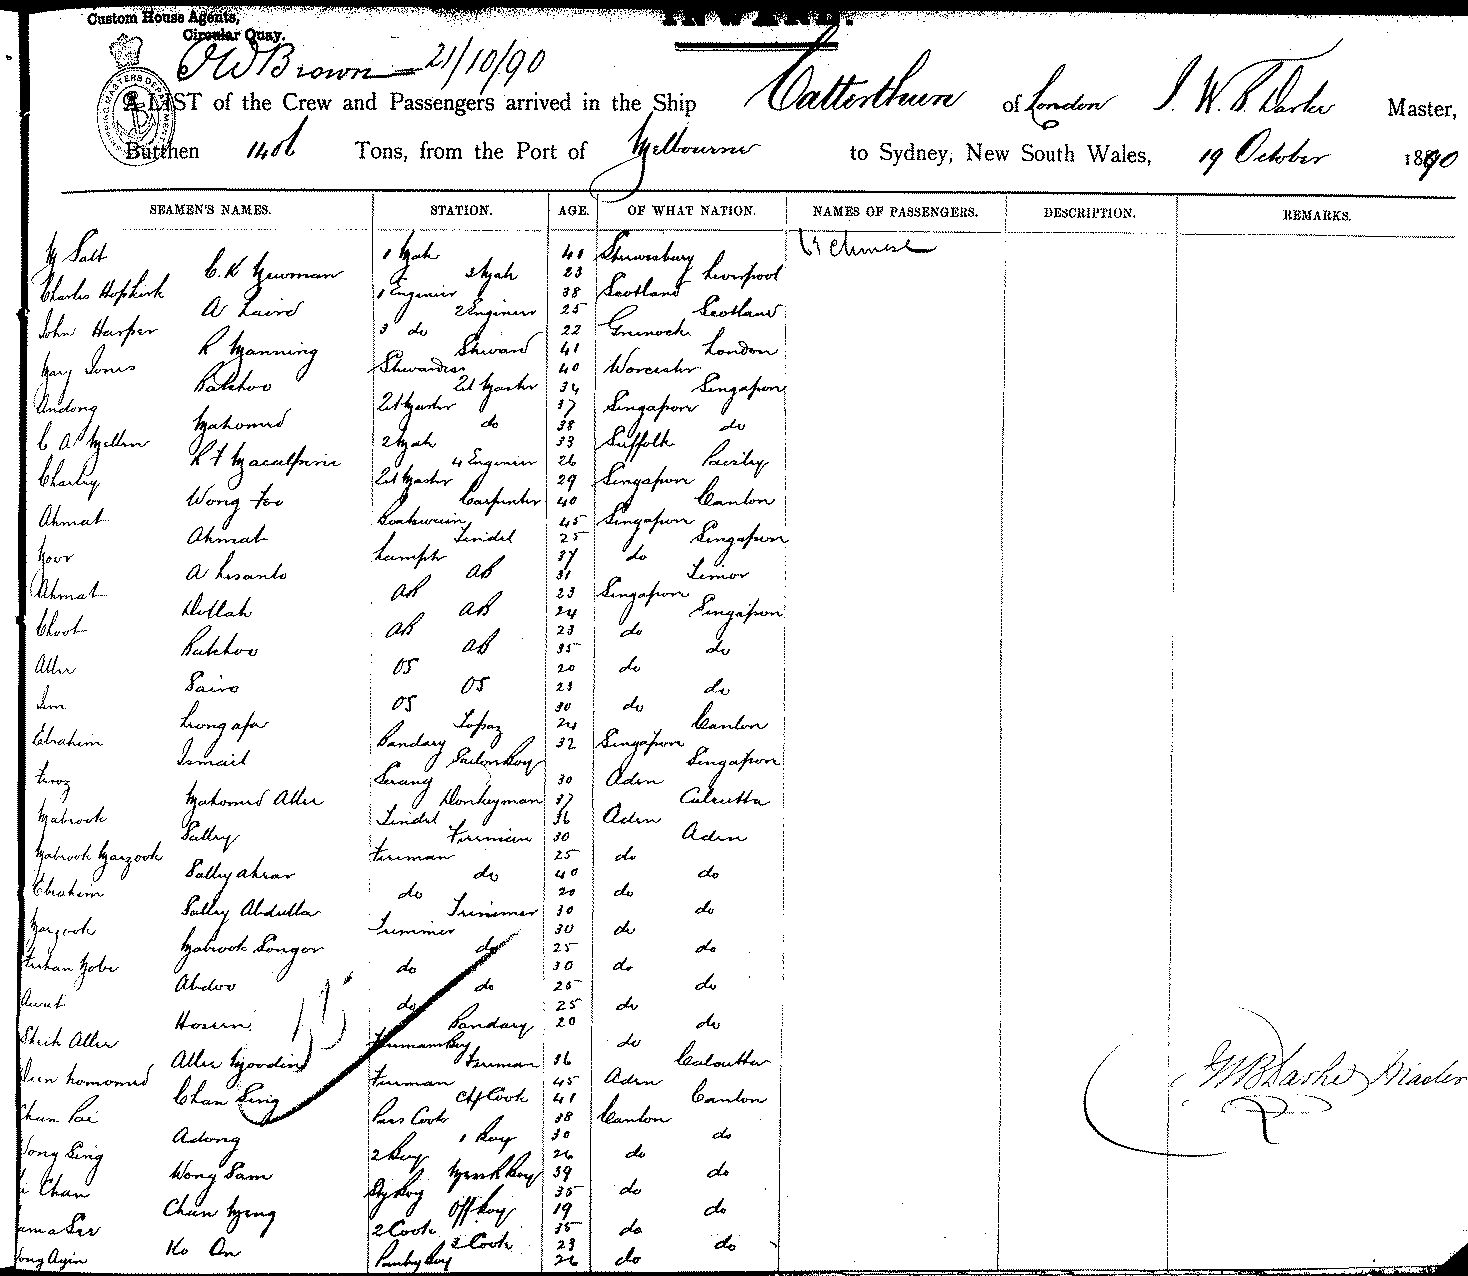 INWARD.
Custom House Agents,
Circular Quay.
JW Brown 21/10/90
A LIST of the Crew and Passengers arrived in the Ship Catterthun of London J. W. B. Darke Master,
Burthen 1406 Tons, from the Port of Melbourne to Sydney, New South Wales, 19 October 1890
SEAMEN'S NAMES. STATION. AGE. OF WHAT NATION. NAMES OF PASSENGERS. DESCRIPTION. REMARKS.
M Salt 1 Mate 41 Shrewsbury
C. K Newman 3 Mate 23 Liverpool
Charles Hopkirk 1 Engineer 38 Scotland
A Laird 2 Engineer 25 Scotland
John Harper 3 do 22 Greenock
R Manning Steward 41 London
Mary Jones Stewardess 40 Worcester
Bakhoo Qtr Master 34 Singapore
Andong Qtr Master 37 Singapore
Mahomed do 38 do
C A Mellin 2 Mate 33 Suffolk
R F Macalpine 4 Engineer 26 Paisley
Charley Qtr Master 29 Singapore
Wong Foo Carpenter 40 Canton
Ahmat Boatswain 45 Singapore
Ahmat Tindel 25 Singapore
Noor Lamps 37 do
A Lesanto AB 31 Timor
Ahmat AB 23 Singapore
Dollah AB 24 Singapore
Choot AB 23 do
Bakhoo AB 35 do
Allie OS 20 do
Sairo OS 23 do
Jim OS 30 do
Leong afa Topaz 24 Canton
Ebrahim Bandary 32 Singapore
Ismail Sailors Boy Singapore
Feroz Serang 30 Aden
Mahomed Aller Donkeyman 37 Calcutta
Mabrook Tindel 36 Aden
Salley Fireman 30 Aden
Mabrook Marzook Fireman 25 do
Salley ahrar do 40 do
Ebrahim do 20 do
Salley Abdulla Trimmer 30 do
Marzook Trimmer 30 do
Mabrook Songor do 25 do
Farhan Mobe do 30 do
Abdoo do 25 do
Awut do 25 do
Hosein Bandary 20 do
Sheik Aller Firemans Boy do
Aller Moodin Fireman 36 Calcutta
Deen homomed Fireman 45 Aden
Chan Sing Chf Cook 41 Canton
Chun Pai Pass Cook 38 Canton
Adong 1 Boy 30 do
Wong Sing 2 Boy 26 do
Wong Sam Mess R Boy 39 do
Chan 35 do
Chun Meng Off Boy 19 do
2 Cook 35 do
Ko On 3 Cook 23 do
Wong Ayin Pantry Boy 26 do
JWB Darke Master